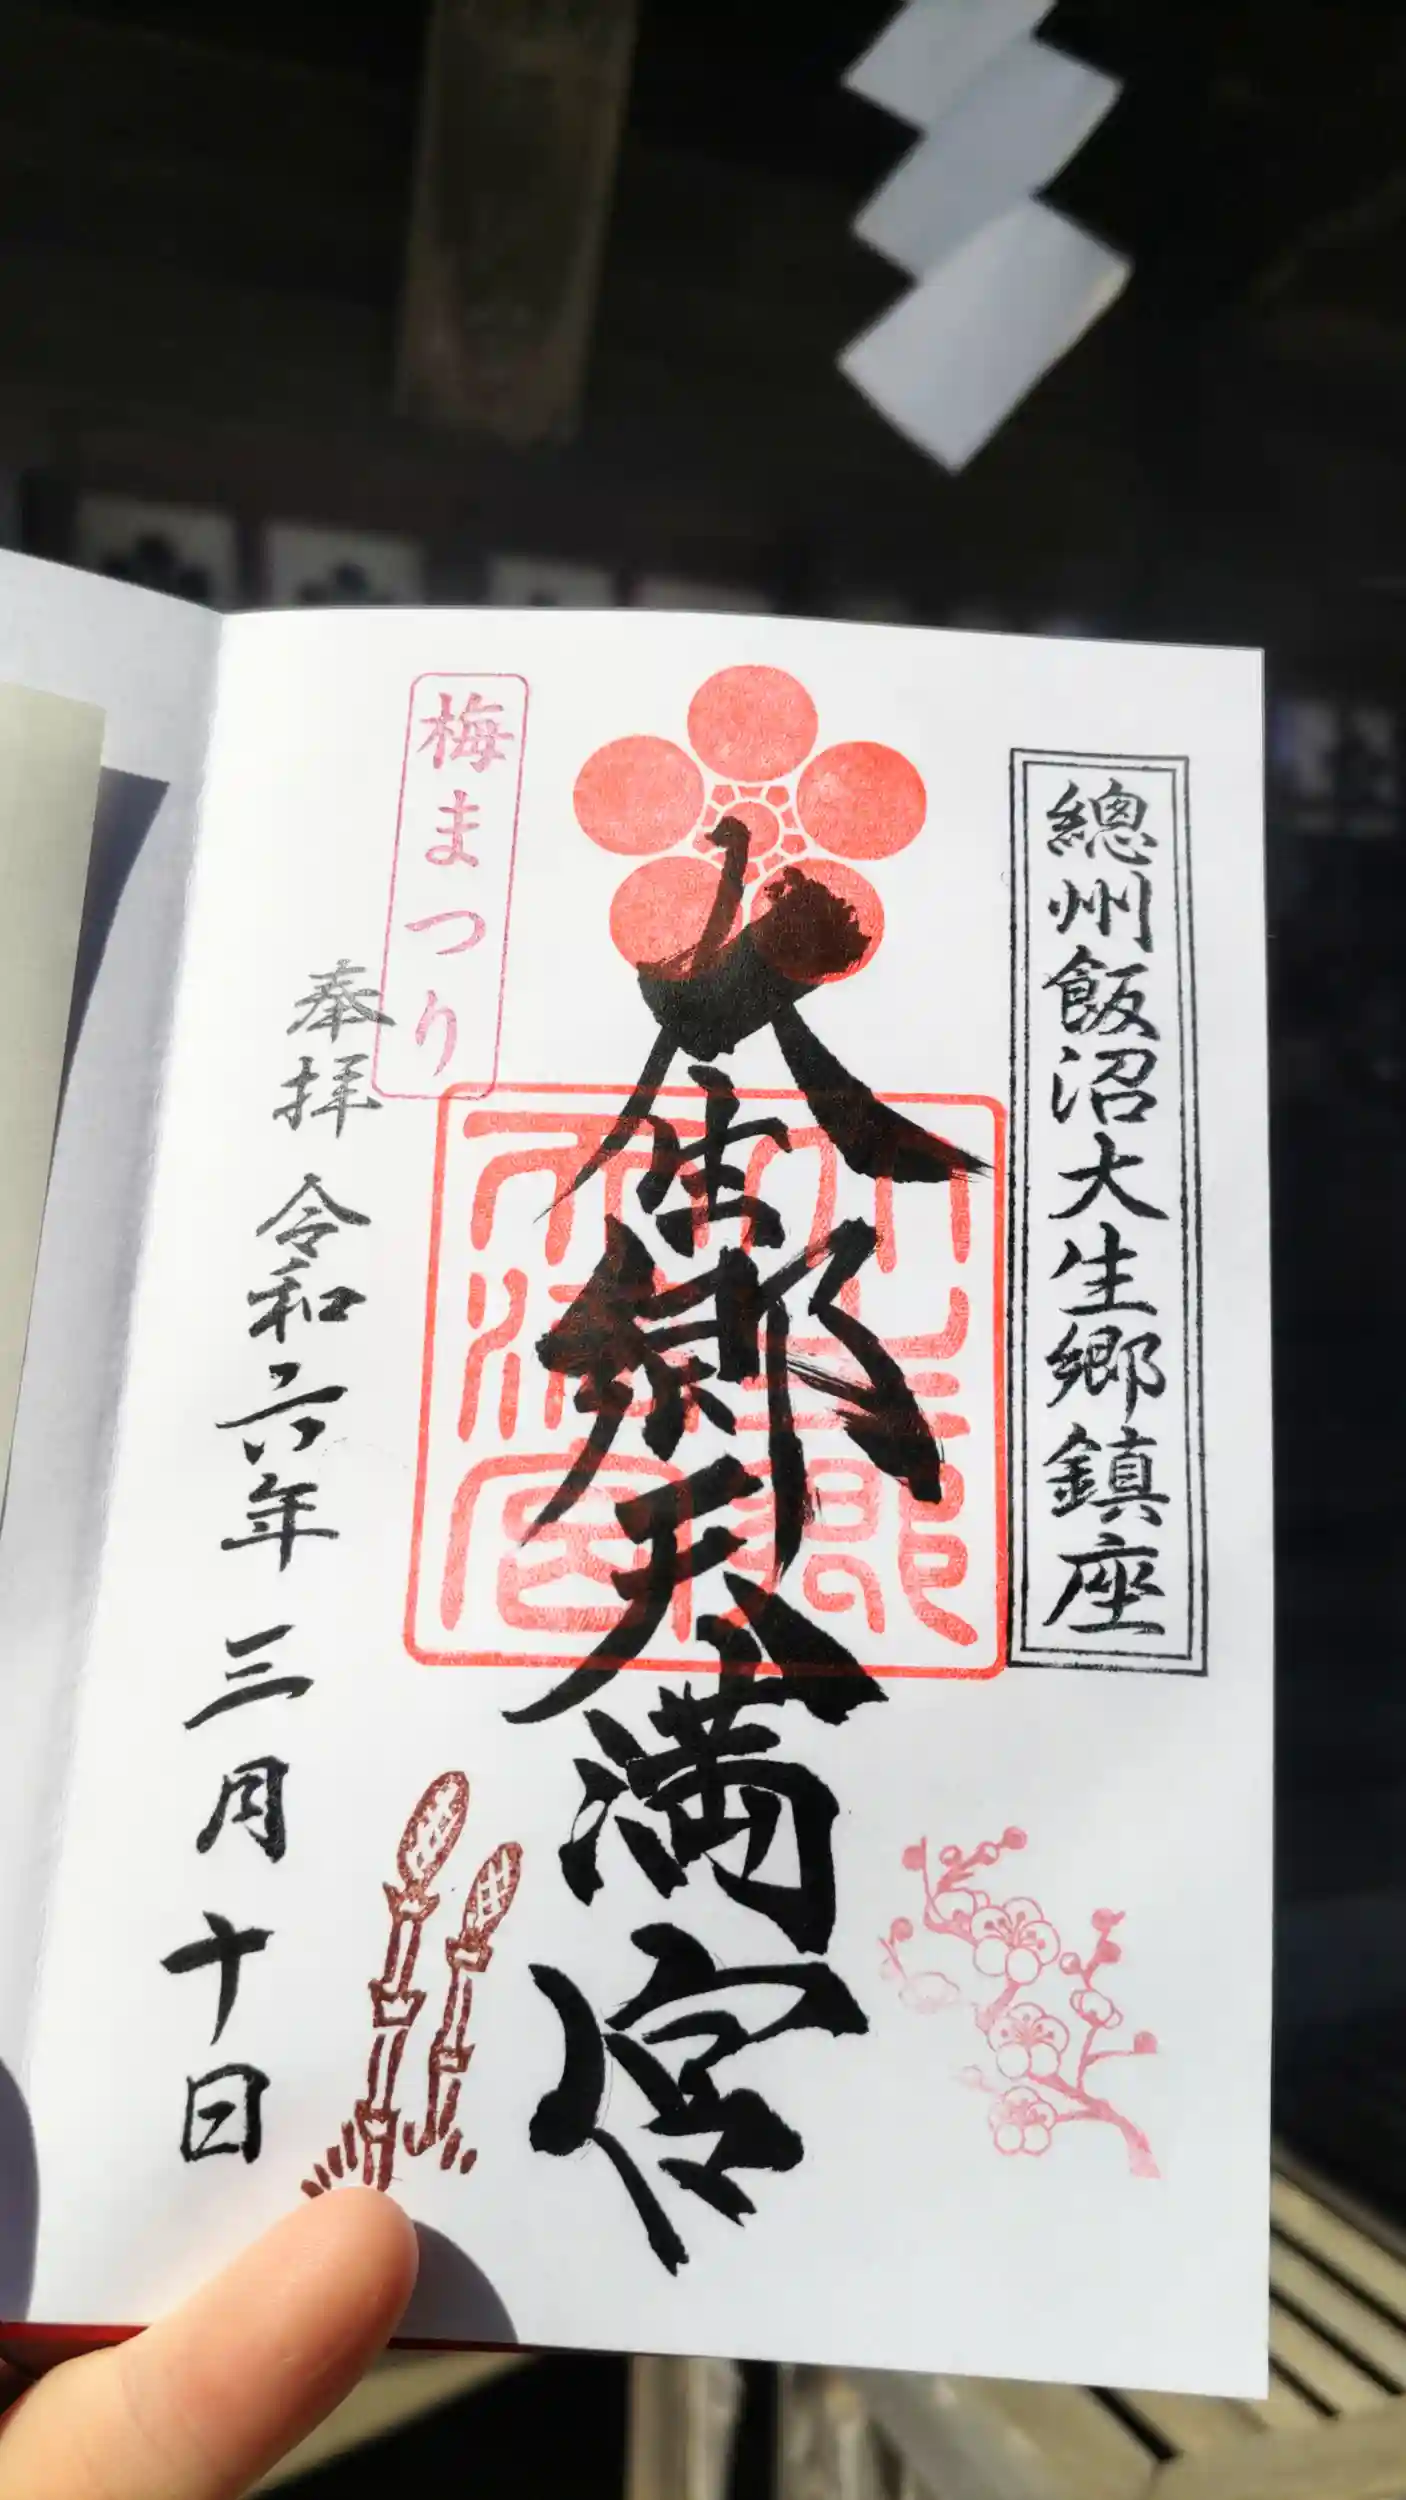 總州飯沼大生郷鎮座
大生郷天満宮
梅まつり
奉拝 令和六年 三月十日